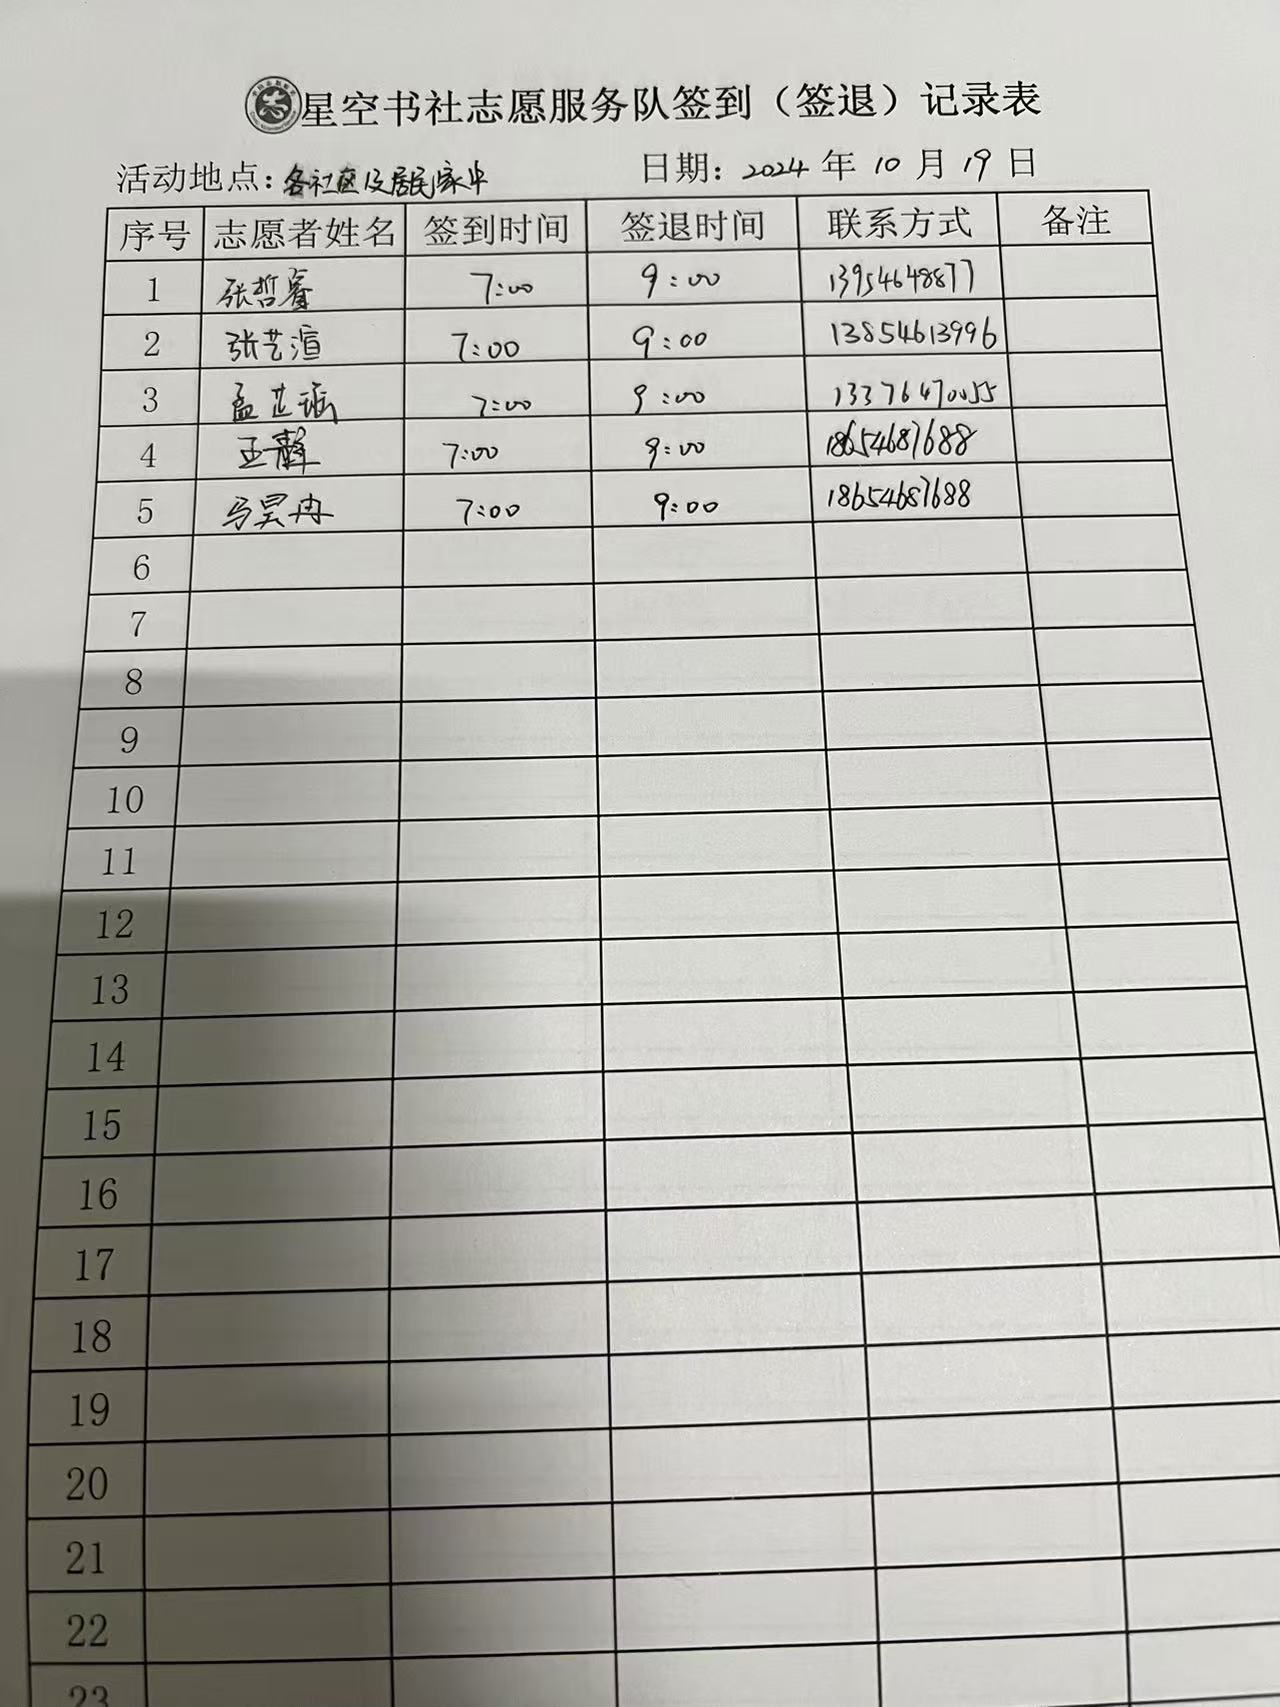 星空书社志愿服务队签到（签退）记录表
活动地点：各社区及居民家中 日期：2024 年 10 月 19 日
序号 志愿者姓名 签到时间 签退时间 联系方式 备注
1 张哲睿 7:00 9:00 13954648877
2 张艺渲 7:00 9:00 13854613996
3 孟芷瑶 7:00 9:00 13376470055
4 王静 7:00 9:00 18654687688
5 马昊冉 7:00 9:00 18654687688
6
7
8
9
10
11
12
13
14
15
16
17
18
19
20
21
22
23